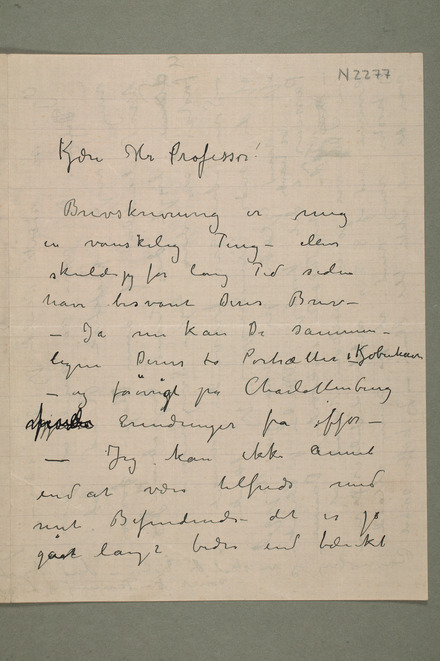 N 2277
Kjære Hr Professor!
Brevskrivning er mig
en vanskelig Ting – ellers
skulde jeg for lang Tid siden
have besvaret Deres Brev –
– Ja nu kan De sammen-
ligne Deres to Portrætter i Kjøbenhavn
– og forøvrigt på Charlottenborg
Erindringer fra ifjor –
– Jeg kan ikke annet
end at være tilfreds med
mit Befindende – det er jo
gåt langt bedre end tænkt